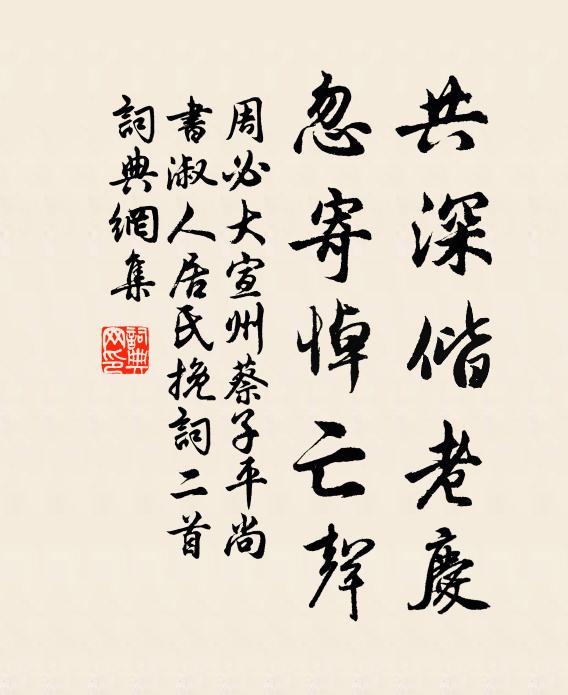 共深偕老慶
忽寄悼亡聲
周必大宣州蔡子平尚
書淑人居民挽詞二首
詞典網集
詞典
网印